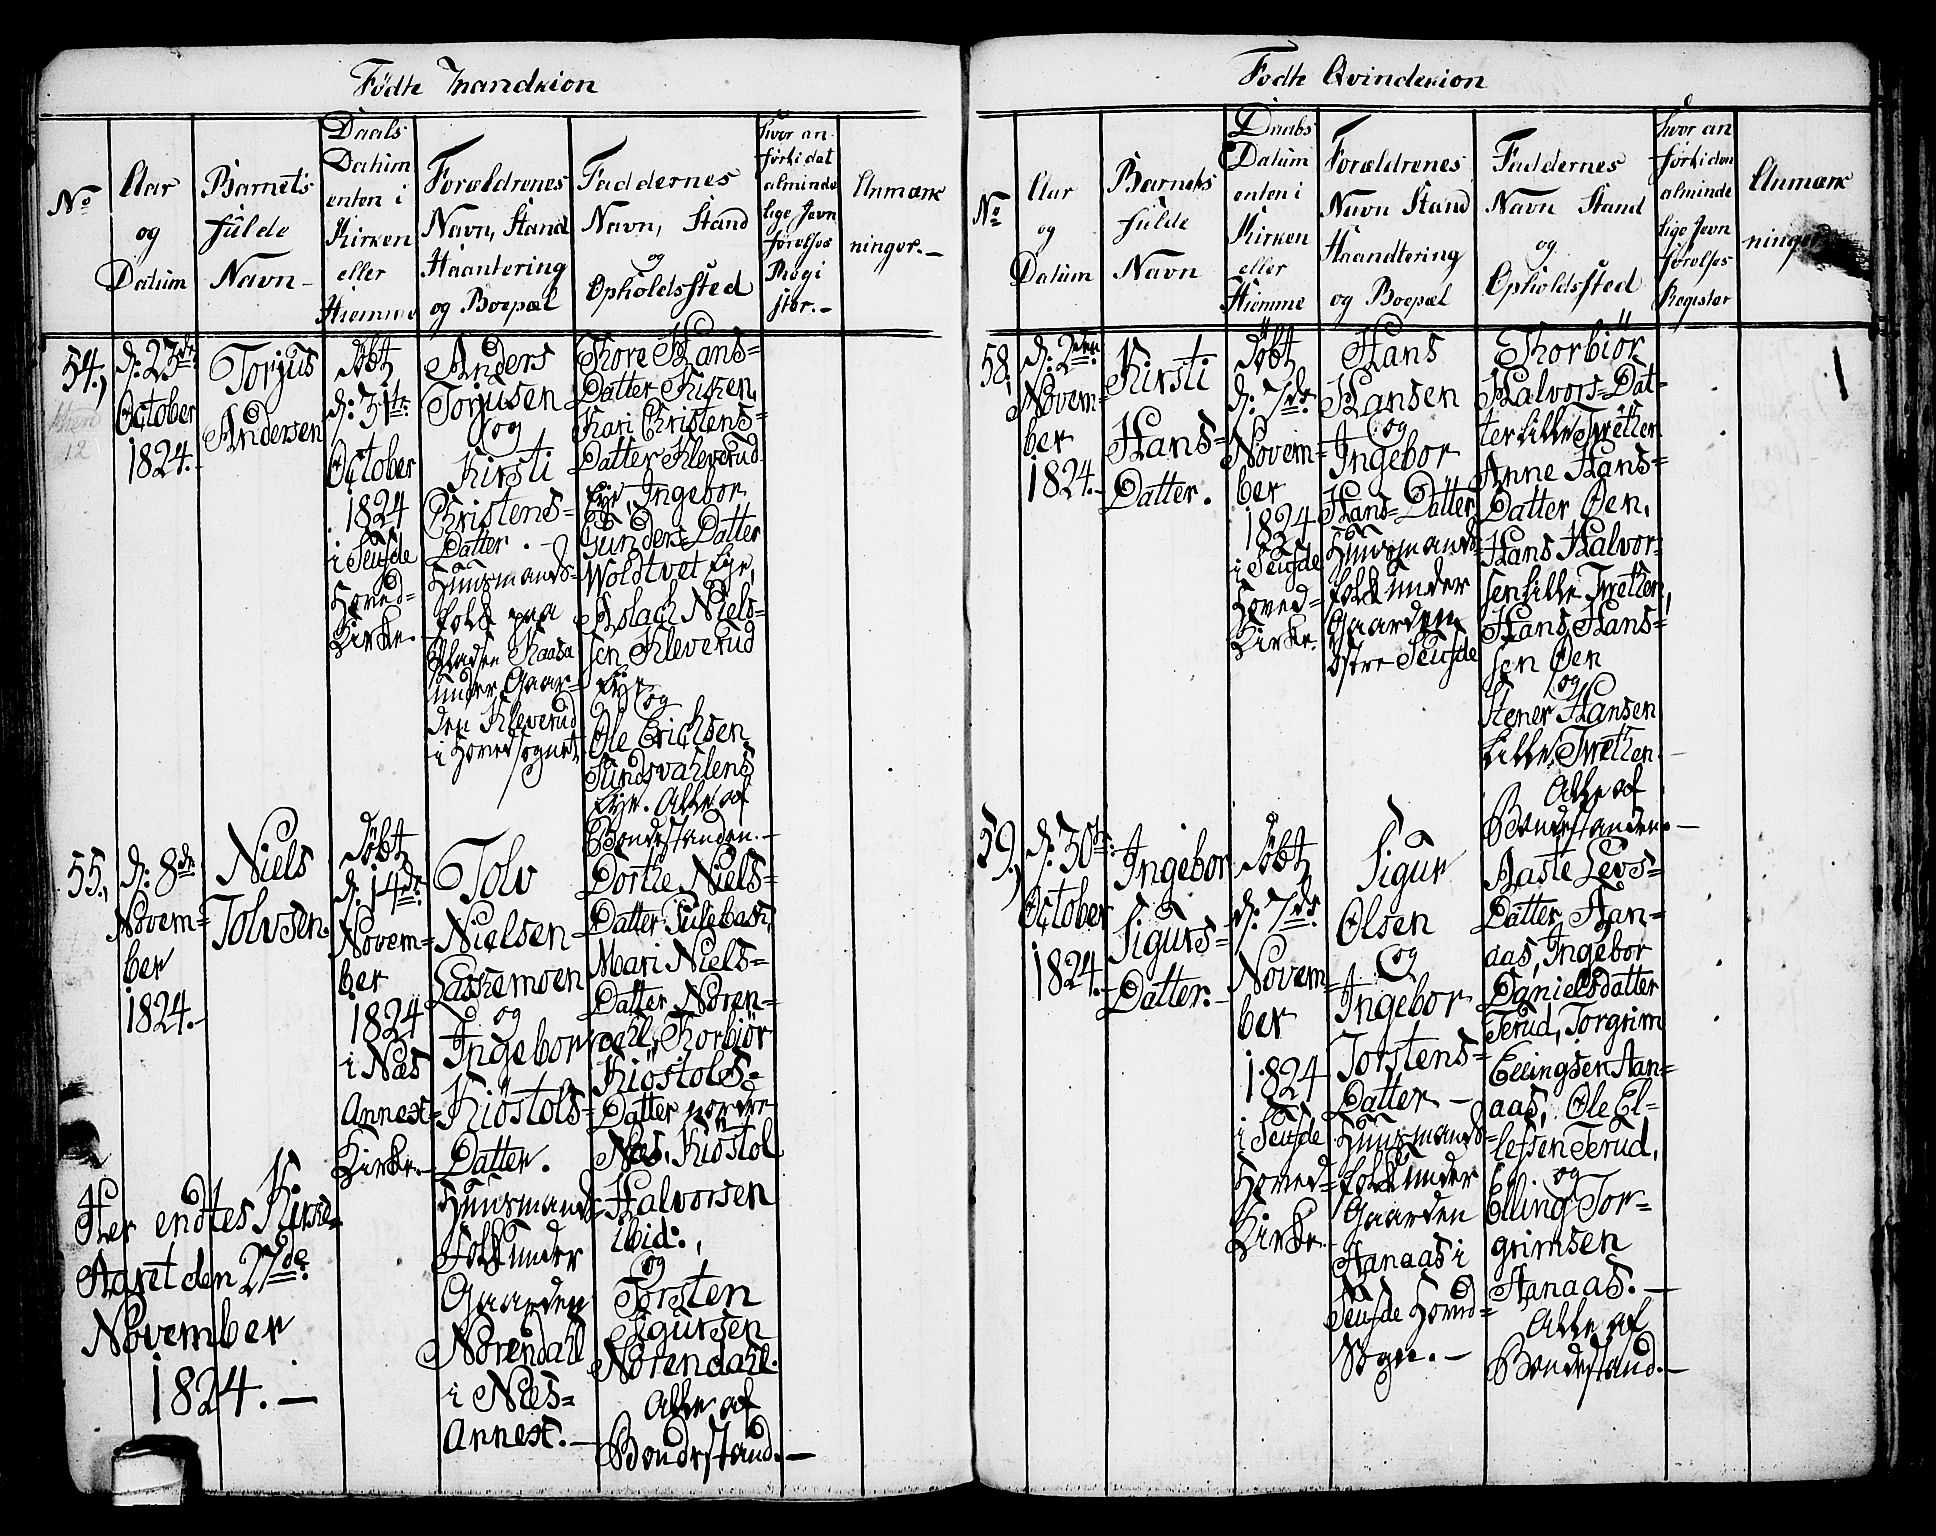 Fødte Mandkion
No
Aar
og
Datum
Barnets
fulde
Navn
Daabs
Datum
enten i
Kirken
eller
Hiemme
Forældrenes
Navn, Stand
Haantering
og Boepæl
Faddernes
Navn, Stand
og
Opholdssted
hvor an-
ført i det
alminde
lige Jevn
førelses
Regi
ster.-
Anmærk
ninger.-
54,
12
d: 23de
October
1824.-
Torjus
Andersen
døbt
d: 31te
October
1824
i Seufde
Hoved=
Kirke.
Anders
Torjusen
og
Kirsti
Christens=
Datter.-
Huusmands=
folk paa
Pladsen Kaasa
under Gaar=
den Kleverud
i Hovedsognet
Thore Hans=
Datter
Kari Christens=
Datter Kleverud
Eye, Ingebor
Gunders=Datter
Woldtvet Eye,
Aslach Niels=
sen Kleverud
Eye
og
Ole Erichsen
Sundsvahlens
Eye. Alle af
Bondestanden.-
55,
d: 8de
Novem=
ber
1824.-
Niels
Tolvsen.
døbt
d: 14de
Novem=
ber
1824
i Næs
Annext=
Kirke.-
Tolv
Nielsen
Laskemoen
og
Ingebor
Kiöstols=
Datter.
Huusmands=
Folk under
Gaarden
Nörendahl
i Næs=
Annext.-
Dorthe Niels=
Datter
Mari Niels=
Datter Nören=
dahl, Thorbiör
Kiöstols=
Datter nordre
Næs, Kiöstol
Halvorsen
ibid:,
og
Torsten
Sigursen
Nörendahl.
Alle af
Bondestand.-
Her endtes Kirke=
Aaret den 27de
November
1824.-
Fødte Qvindekion
No
Aar
og
Datum
Barnets
fulde
Navn
Daabs
Datum
enten i
Kirken
eller
Hiemme
Forældrenes
Navn Stand
Haandtering
og Boepæl
Faddernes
Navn Stand
og
Opholdssted
hvor an
ført i den
alminde
lige Jevn
førelses
Register
Anmærk
ninger
58,
d: 2den
Novem=
ber
1824.-
Kirsti
Hans=
Datter.
döbt
d: 7de
Novem=
ber
1824
i Seufde
Hoved=
Kirke.
Hans
Hansen
og
Ingebor
Hans=Datter
Huusmands=
folk under
Gaarden
östre Seufde
Thorbiör
Halvors=Dat=
ter Lille Twethen
Anne Hans=
Datter Öen,
Hans Halvor=
sen Lille Twethen,
Hans Hans=
sen Öen
og
Stener Hansen
Lille Twethen.
Alle af
Bondestanden.-
59,
d: 30te
October
1824.-
Ingebor
Sigurs=
Datter.-
døbt
d: 7de
Novem=
ber
1824
i Seufde
Hoved=
Kirke.
Sigur
Olsen
og
Ingebor
Torstens=
Datter -
Huusmands=
folk under
Gaarden
Hanaas i
Seufde Hoved=
Sogn.-
Aaste Levs=
Datter Han=
aas, Ingebor
Danielsdatter
Terud, Torgrim
Ellingsen Han=
aas, Ole El=
lefsen Terud,
og
Elling Tor=
grimsen
Hanaas.-
Alle af
Bondestand.-